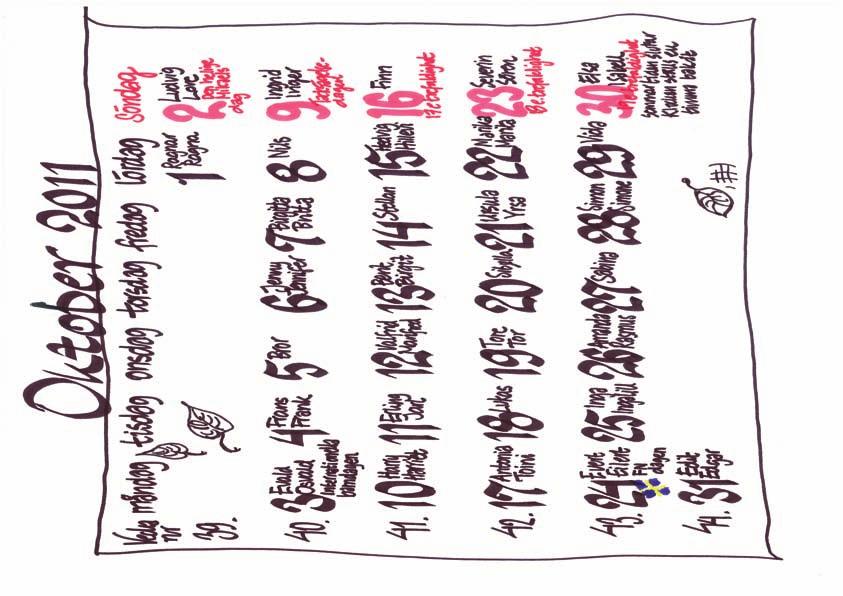 Oktober 2011
Vecka nr måndag tisdag onsdag torsdag fredag lördag Söndag
39.
1 Ragnar
Ragna
2 Ludvig
Love
Den helige
Mikaels
dag
40.
3 Evald
Osvald
Internationella
barndagen
4 Frans
Frank
5 Bror
6 Jenny
Jennifer
7 Birgitta
Britta
8 Nils
9 Ingrid
Inger
Tacksägelse-
dagen
41.
10 Harry
Harriet
11 Erling
Jarl
12 Valfrid
Manfred
13 Berit
Birgit
14 Stellan
15 Hedvig
Hillevi
16 Finn
17 e trefaldighet
42.
17 Antonia
Toini
18 Lukas
19 Tore
Tor
20 Sibylla
21 Ursula
Yrsa
22 Marika
Marita
23 Severin
Sören
18 e. trefaldighet
43.
24 Evert
Eilert
FN
dagen
25 Inga
Ingalill
26 Amanda
Rasmus
27 Sabina
28 Simon
Simone
29 Viola
30 Elsa
Isabella
19 e trefaldighet
Sommartiden slutar
Klockan ställs en
timma bakåt
44.
31 Edit
Edgar